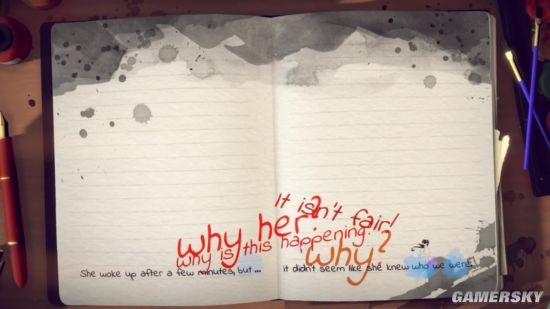 It isn't fair!
why her?
why is this happening?
why?
She woke up after a few minutes, but ...
it didn't seem like she knew who we were.
GAMERSKY